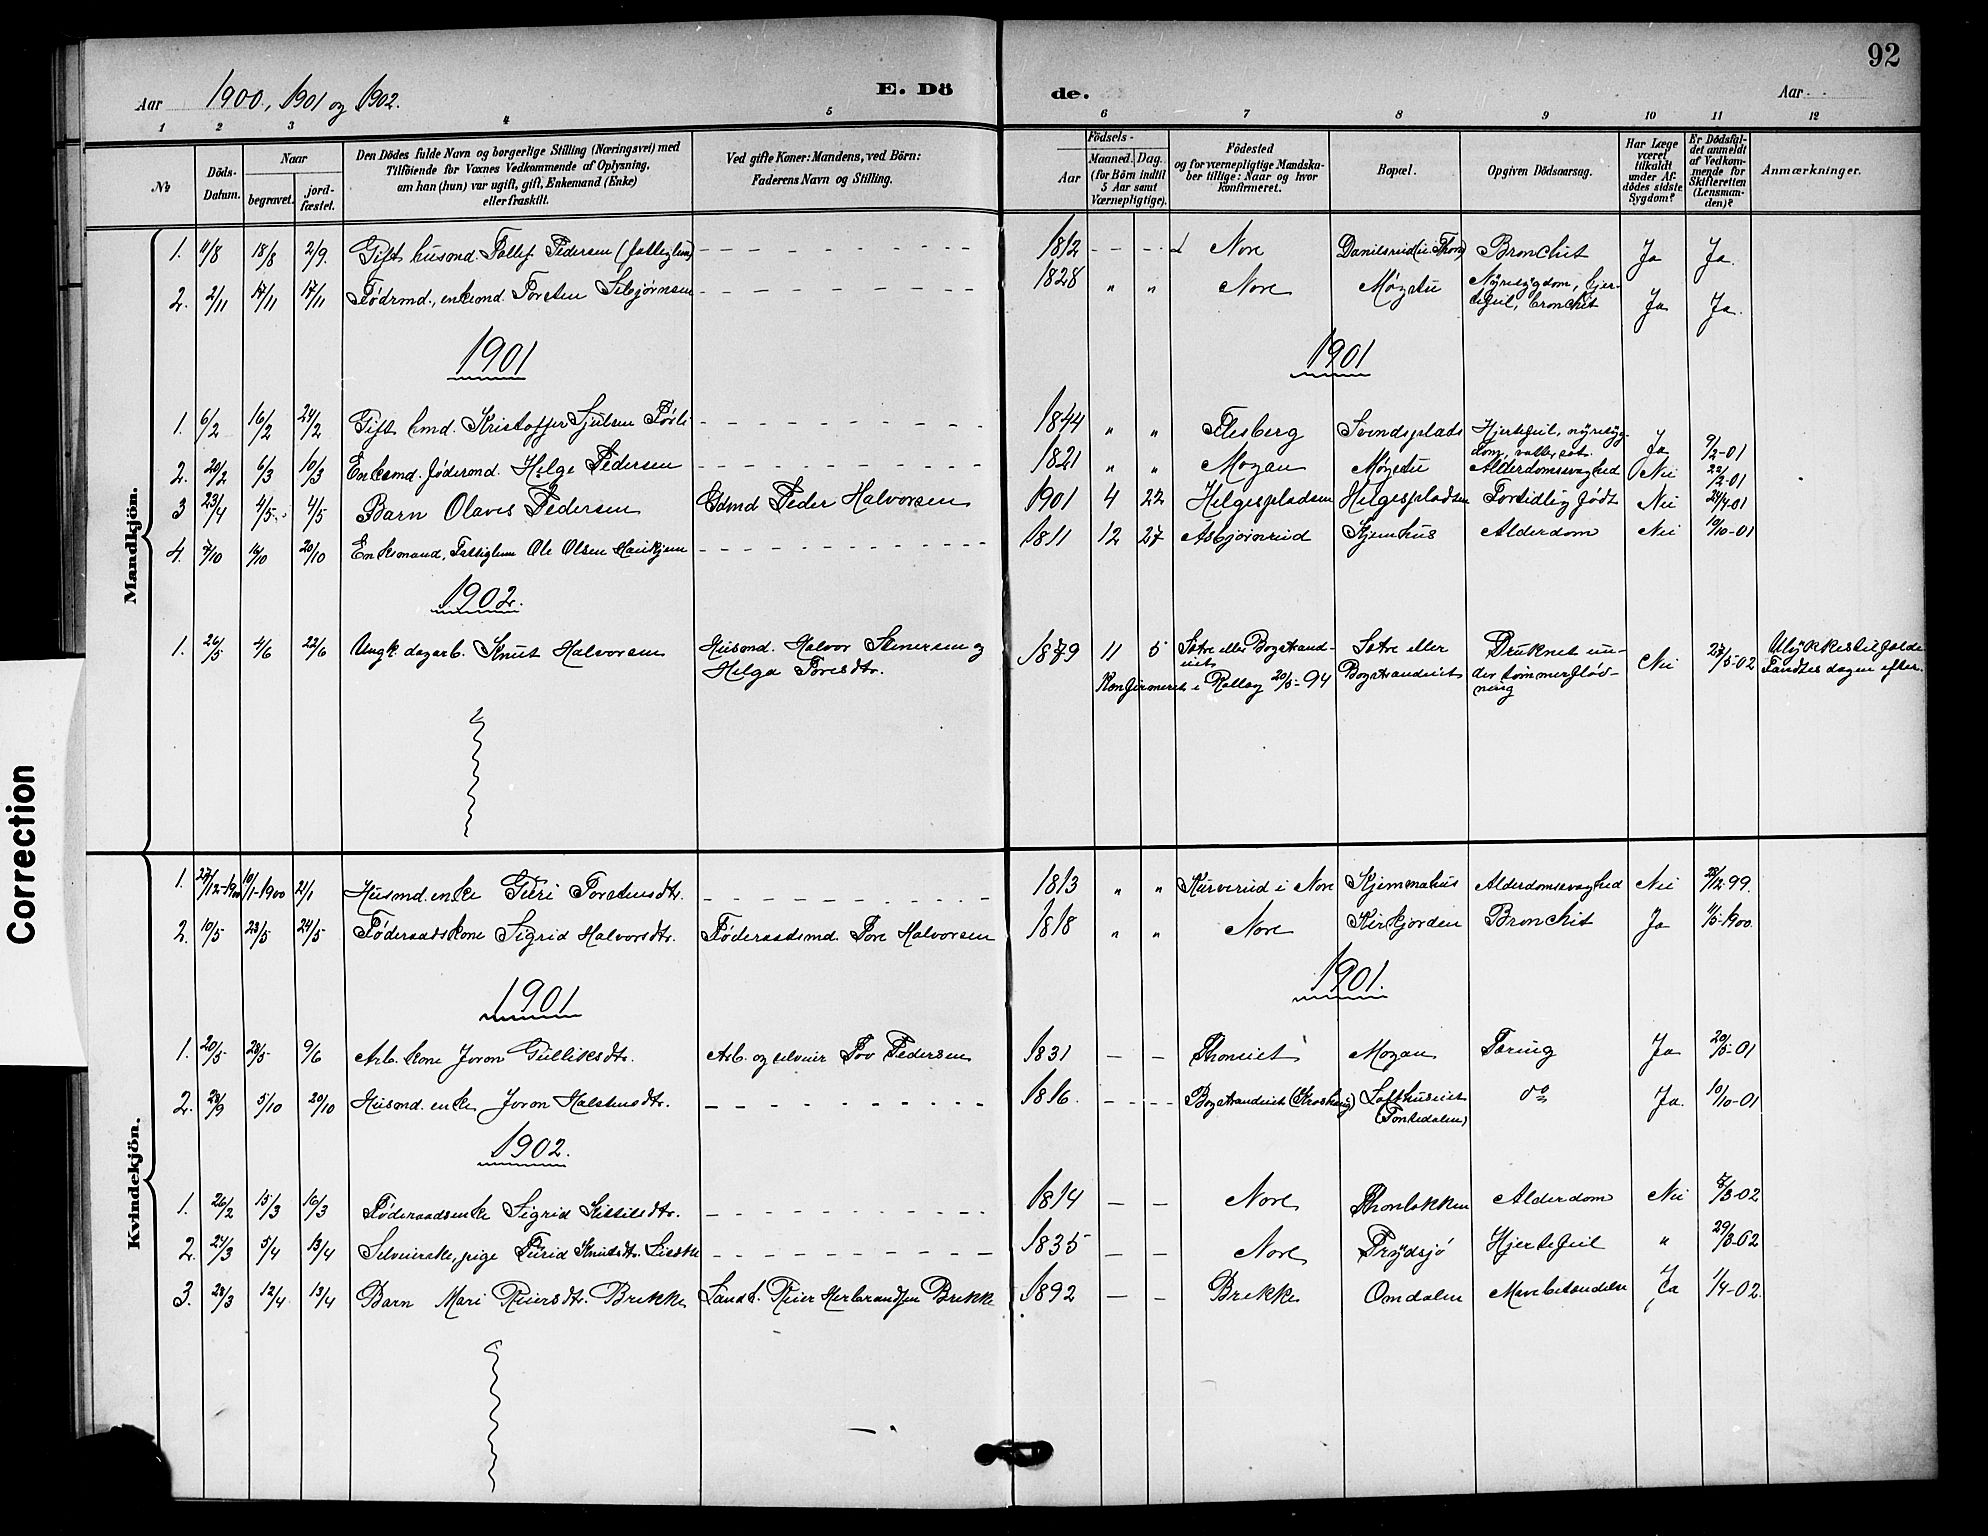 92
Aar 1900, 1901 og 1902.
E. Dö
de.
Aar
1 2 3 4 5 6 7 8 9 10 11 12
No
Döds-Datum.
Naar
begravet.
jord-fæstet.
Den Dödes fulde Navn og borgerlige Stilling (Næringsvei) med
Tilföiende for Voxnes Vedkommende af Oplysning,
om han (hun) var ugift, gift, Enkemand (Enke)
eller fraskilt.
Ved gifte Koner: Mandens, ved Börn:
Faderens Navn og Stilling.
Födsels-
Aar
Maaned. Dag.
(for Börn indtil
5 Aar samt
Værnepligtige).
Födested
og for værnepligtige Mandska-
ber tillige: Naar og hvor
Konfirmeret.
Bopæl.
Opgiven Dödsaarsag.
Har Læge
været
tilkaldt
under Af-
dödes sidste
Sygdom?
Er Dödsfal-
det anmeldt
af Vedkom-
mende for
Skifteretten
(Lensman-
den)?
Anmærkninger.
Mandkjön.
1. 11/8 18/8 2/9. Gift husmd. Tollef Pedersen (fattiglem) 1812 Nore Danilsrud (u. Thon) Bronchit Ja Ja
2. 2/11 17/11 17/11 Födrmd., enkemd. Torsten Sebjørnsen 1828 " " Nore Møgstu Nyresygdom, hjer-
tefeil, bronchit Ja Ja.
1901 1901
1. 6/2 16/2 24/2 Gift hmd. Kristoffer Sjulsen 1844 " " Flesberg Svendsplads Hjertefeil, nyresyg-
dom, vattersot. Ja 9/2-01
2. 20/2 6/3 10/3 Enkemd. födermd. Helge Pedersen 1821 " " Mogan Møgstu Alderdomssvaghed Nei 22/2-01
3 23/4 4/5 4/5 Barn Olaves Pedersen Gdmd Peder Halvorsen 1901 4 22 Helgespladsen Helgespladsen Fortidlig födt Nei 24/4-01
4. 7/10 16/10 20/10 Enkemand, Fattiglem Ole Olsen 1811 12 27 Asbjørnrud Kjemhus Alderdom Nei 10/10-01
1902.
1. 26/5 4/6 22/6 Ungk. dagarb. Knut Halvorsen Husmd. Halvor Stenersen og
Helga Toresdtr. 1879 11 5 Sætre eller Bogstrand-
eiet
Konfirmeret i Rollag 20/5-94 Sætre eller
Bogstrandeiet Druknet un-
der tømmerflød-
ning Nei 27/5-02 Ulykkestilfælde
Fandtes dagen efter.
Kvindekjön.
1. 27/12-1900 10/1-1900 21/1 Husmd. enke Guri Torstensdtr. 1813 " " Kurverud i Nore Kjemmahus Alderdomssvaghed Nei 28/12-99.
2. 10/5 23/5 24/5 Föderaadskone Sigrid Halvorsdtr. Föderaadsmd. Tore Halvorsen 1818 " " Nore Kirkjorden Bronchit Ja 11/5-1900.
1901 1901.
1. 20/5 28/5 9/6 Arb. kone Joron Gulliksdtr. Arb. og selveier Tov Pedersen 1831 Thoneiet Mogan Tæring Ja 20/5-01
2. 28/9 5/10 20/10 Husmd. enke Joron Halstensdtr. 1816. Bogstrandeiet Lofthuseiet
(Tonkedalen) do Ja. 10/10-01
1902.
1. 26/2 15/3 16/3 Föderaadsenke Sigrid Kittilsdtr. 1814 Nore Thonlökken Alderdom Nei 8/3-02
2. 24/3 5/4 13/4 Selveierske, pige Turid Knutsdtr. 1835 Nore Prydsjø Hjertefeil " 29/3-02
3. 28/3 12/4 13/4 Barn Mari Reiersdtr. Brekke Landh. Reier Herbrandsen Brekke 1892 Brekke Omdalen Mavebetændelse Ja 1/4-02
Correction